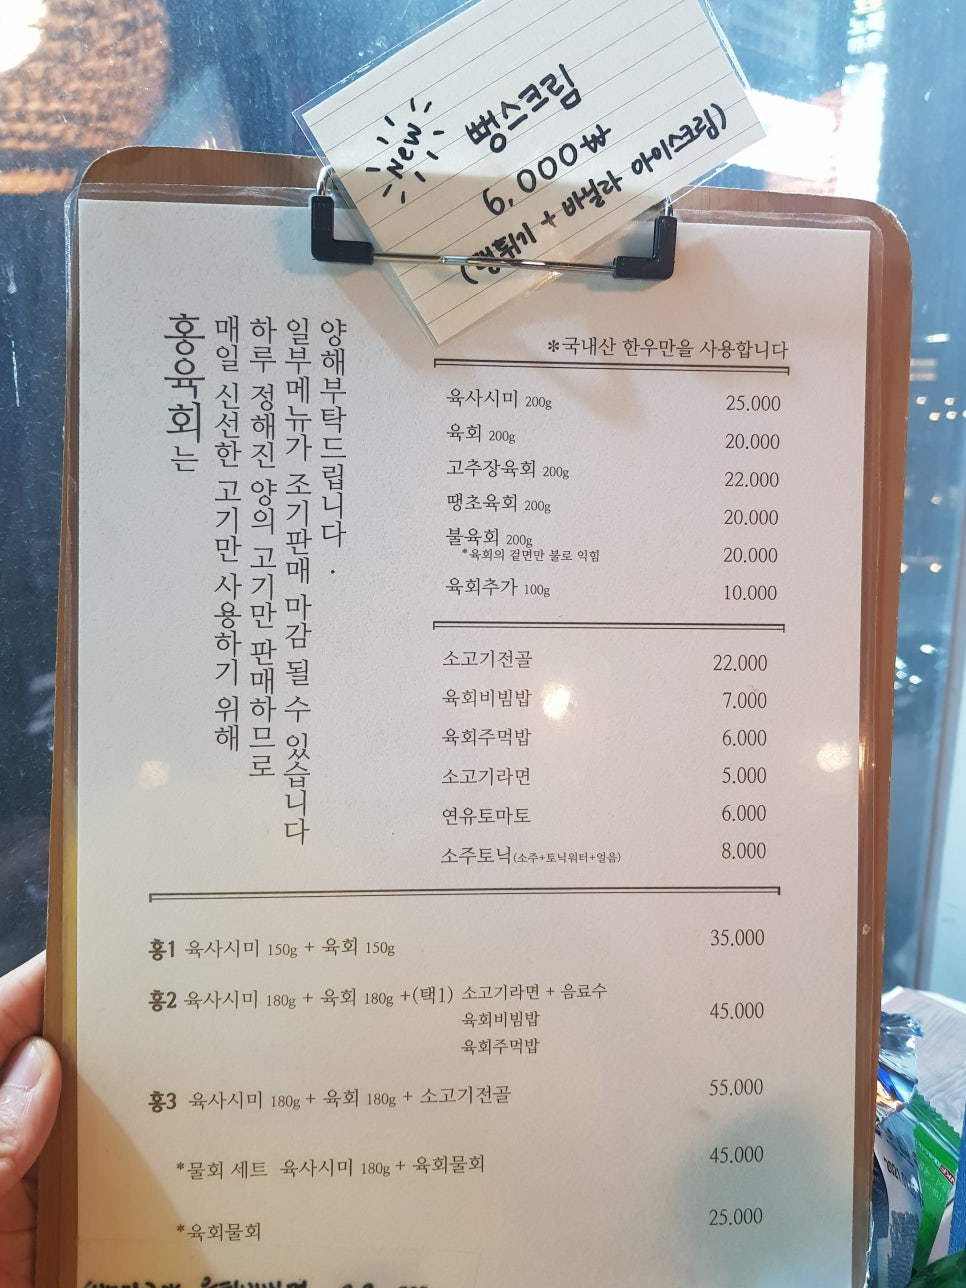 New
뻥스크림
9,000₩
(뻥튀기 + 바닐라 아이스크림)
홍육회는
매일 신선한 고기만 사용하기 위해
하루 정해진 양의 고기만 판매하므로
일부메뉴가 조기판매 마감 될 수 있습니다
양해부탁드립니다.
*국내산 한우만을 사용합니다
육사시미 200g 25.000
육회 200g 20.000
고추장육회 200g 22.000
땡초육회 200g 20.000
불육회 200g 20.000
*육회의 겉면만 불로 익힘
육회추가 100g 10.000
소고기전골 22.000
육회비빔밥 7.000
육회주먹밥 6.000
소고기라면 5.000
연유토마토 6.000
소주토닉(소주+토닉워터+얼음) 8.000
홍1 육사시미 150g + 육회 150g 35.000
홍2 육사시미 180g + 육회 180g +(택1) 소고기라면 + 음료수 45.000
육회비빔밥
육회주먹밥
홍3 육사시미 180g + 육회 180g + 소고기전골 55.000
*물회 세트 육사시미 180g + 육회물회 45.000
*육회물회 25.000